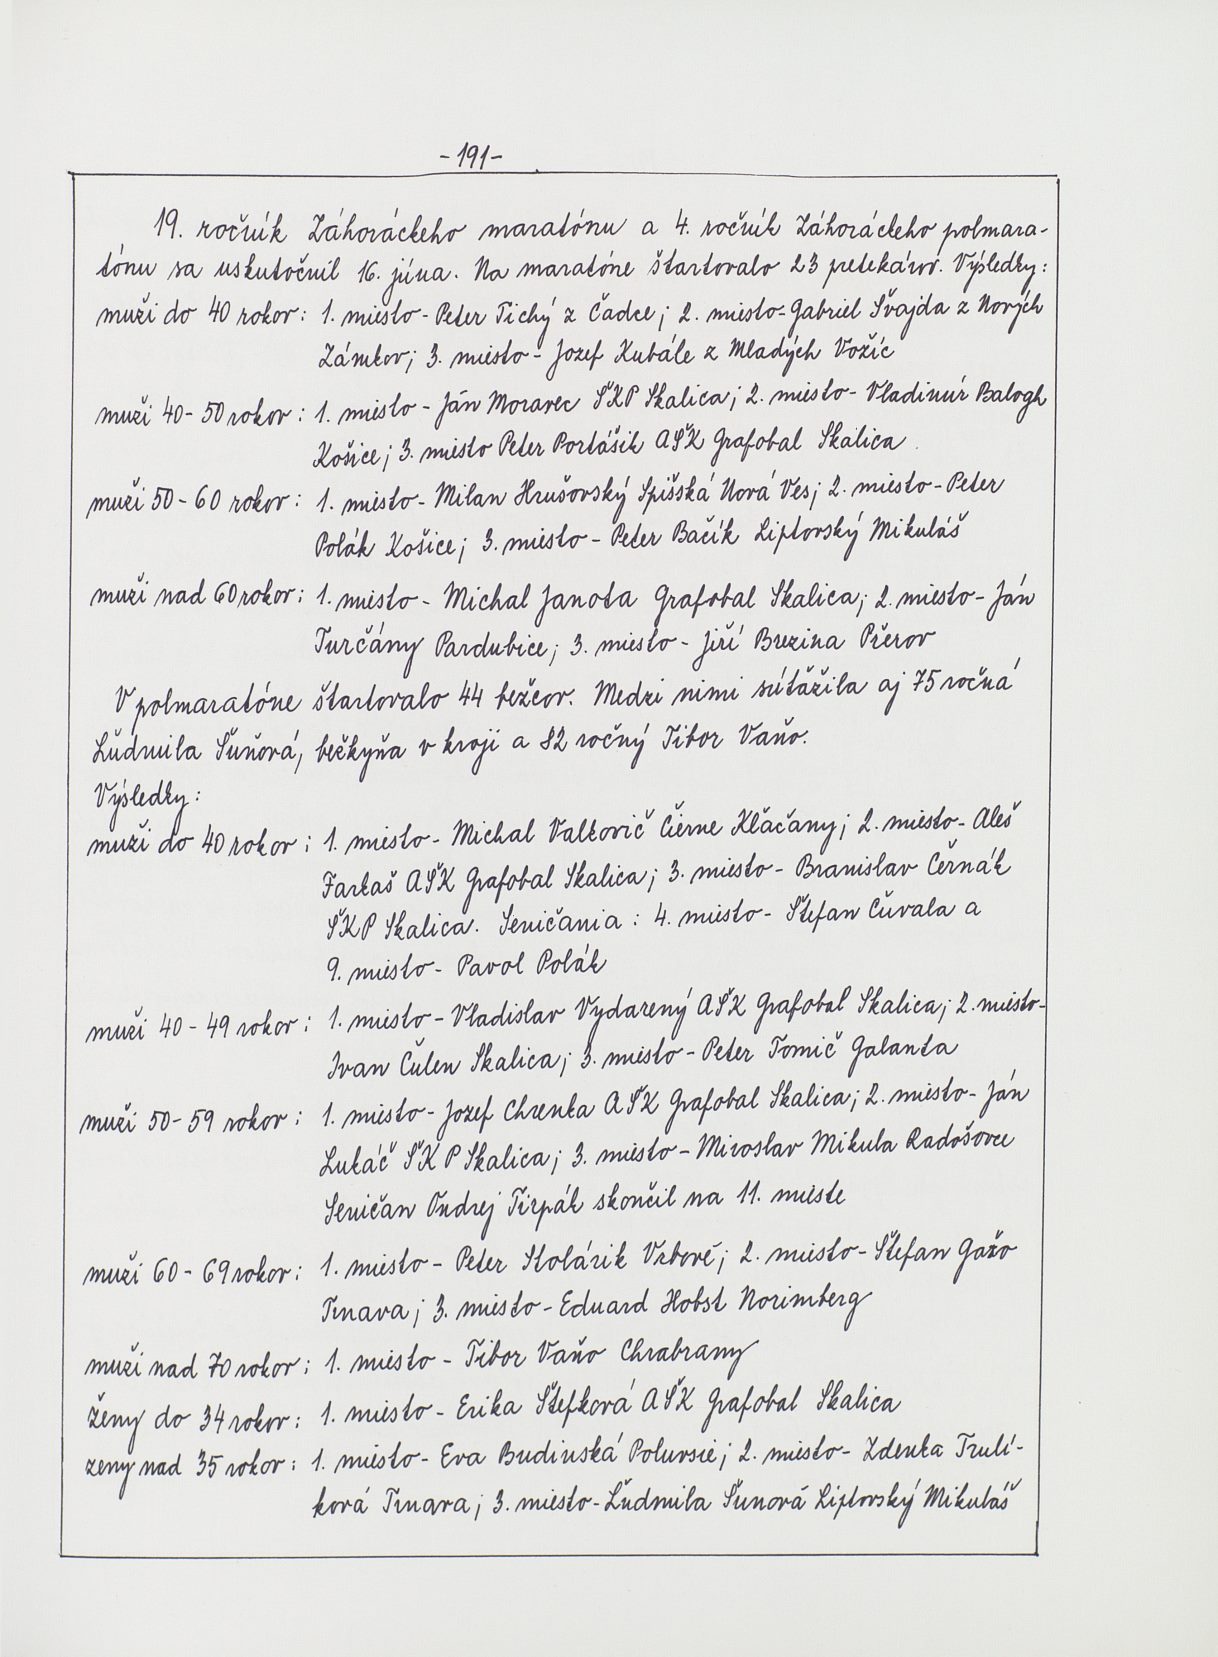 -191-
19. ročník Záhoráckeho maratónu a 4. ročník Záhoráckeho polmara-
tónu sa uskutočnil 16. júna. Na maratóne štartovalo 23 pretekárov. Výsledky:
muži do 40 rokov: 1. miesto - Peter Tichý z Čadce; 2. miesto - Gabriel Švajda z Nových
Zámkov; 3. miesto - Jozef Kubále z Mladých Vožíc
muži 40-50 rokov: 1. miesto - Ján Moravec ŠKP Skalica; 2. miesto - Vladimír Balogh
Košice; 3. miesto Peter Portášik AŠK Grafobal Skalica
muži 50-60 rokov: 1. miesto - Milan Hrušovský Spišská Nová Ves; 2. miesto - Peter
Polák Košice; 3. miesto - Peter Bačík Liptovský Mikuláš
muži nad 60 rokov: 1. miesto - Michal Janota Grafobal Skalica; 2. miesto - Ján
Turčány Pardubice; 3. miesto - Jiří Brezina Přerov
V polmaratóne štartovalo 44 bežcov. Medzi nimi súťažila aj 75 ročná
Ľudmila Šuňová, bežkyňa v kroji a 82 ročný Tibor Vaňo.
Výsledky:
muži do 40 rokov: 1. miesto - Michal Valkovič Čierne Kľačany; 2. miesto - Aleš
Farkaš AŠK Grafobal Skalica; 3. miesto - Branislav Černák
ŠKP Skalica. Seničania: 4. miesto - Štefan Čuvala a
9. miesto - Pavol Polák
muži 40-49 rokov: 1. miesto - Vladislav Vydarený AŠK Grafobal Skalica; 2. miesto-
Ivan Čulen Skalica; 3. miesto - Peter Tomič Galanta
muži 50-59 rokov: 1. miesto - Jozef Chrenka AŠK Grafobal Skalica; 2. miesto - Ján
Lukáč ŠKP Skalica; 3. miesto - Miroslav Mikula Radošovce
Seničan Ondrej Tirpák skončil na 11. mieste
muži 60-69 rokov: 1. miesto - Peter Stolárik Vrbové; 2. miesto - Štefan Gažo
Trnava; 3. miesto - Eduard Hobst Norimberg
muži nad 70 rokov: 1. miesto - Tibor Vaňo Chrabrany
ženy do 34 rokov: 1. miesto - Erika Štefková AŠK Grafobal Skalica
zeny nad 35 rokov: 1. miesto - Eva Budinská Poluvsie; 2. miesto - Zdenka Trulí-
ková Trnava; 3. miesto - Ľudmila Šunová Liptovský Mikuláš